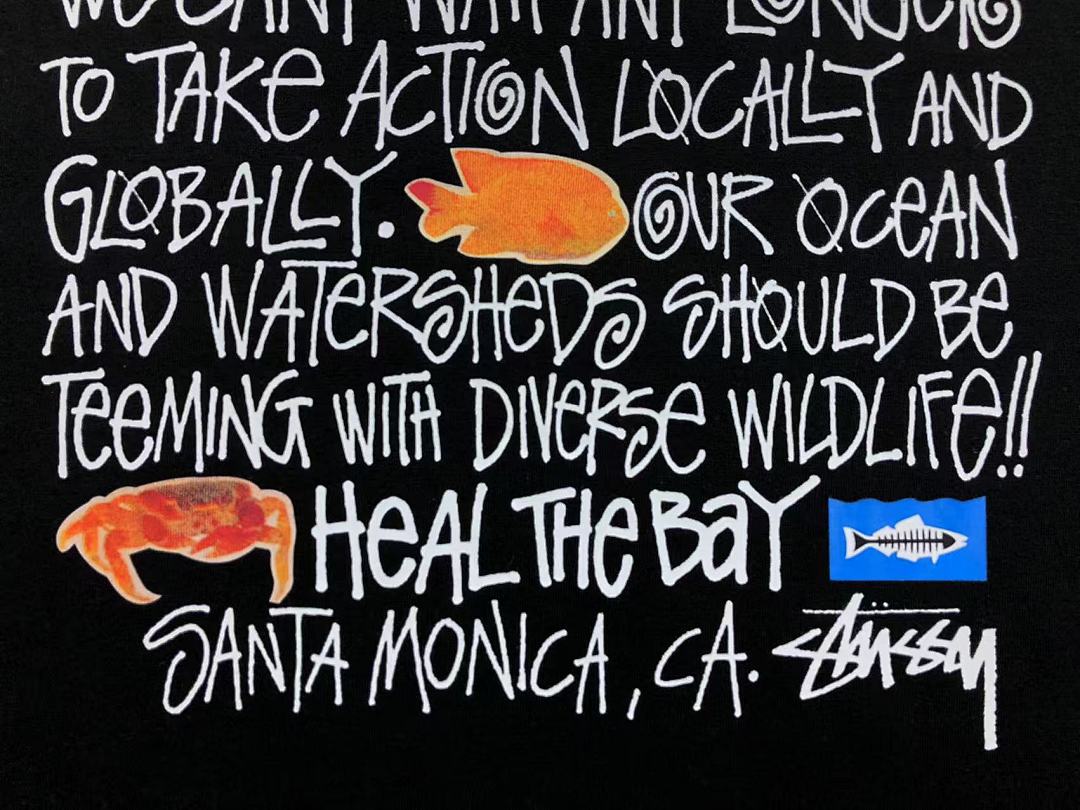 WE CAN'T WAIT ANY LONGER
TO TAKE ACTION LOCALLY AND
GLOBALLY. OUR OCEAN
AND WATERSHEDS SHOULD BE
TEEMING WITH DIVERSE WILDLIFE!!
HEAL THE BAY
SANTA MONICA, CA. Stüssy